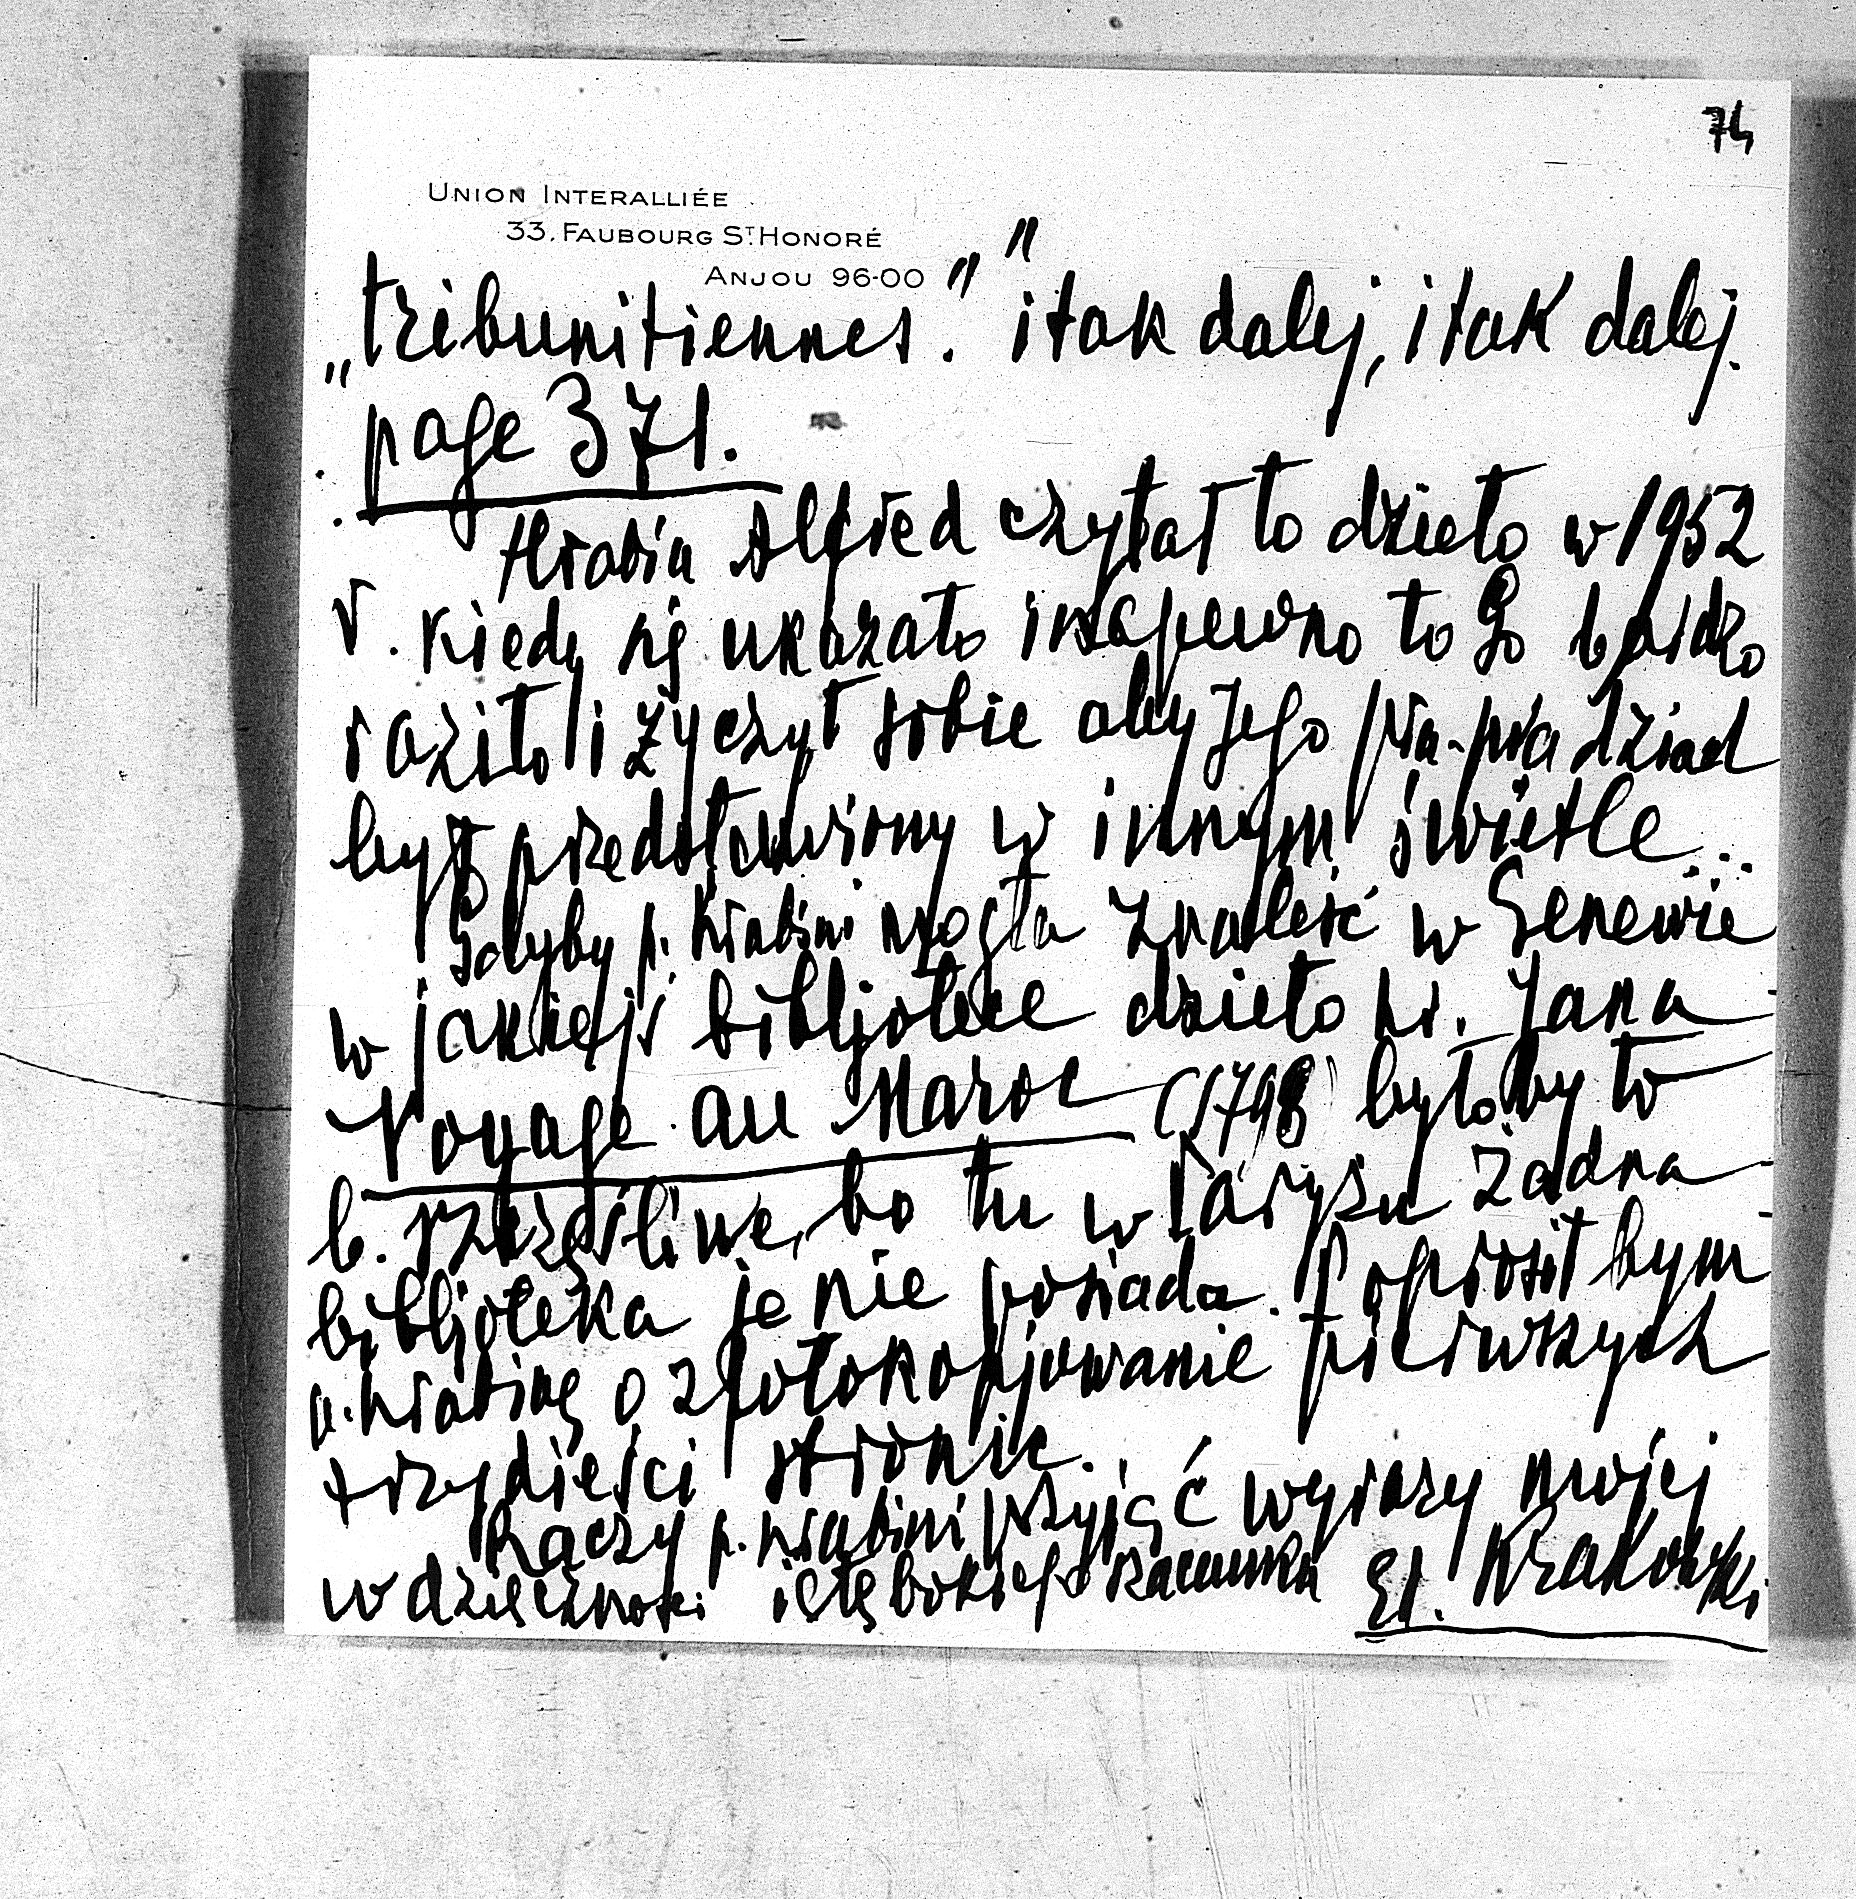 74
UNION INTERALLIÉE
33, FAUBOURG ST. HONORÉ
ANJOU 96-00
„tribunitiennes.” ” i tak dalej, i tak dalej.
page 371.
Hrabia Alfred czytał to dzieło w 1952
r. kiedy się ukazało i zapewno to go bardzo
raziło i życzył sobie aby jego pra-pra dziad
był przedstawiony w innym świetle...
Gdyby p. hrabini mogła znaleść w Genewie
w jakiejś bibljotece dzieło hr. Jana
Voyage au Maroc (1798) byłoby to
b. szczęśliwe, bo tu w Paryżu żadna
bibljoteka je nie posiada. Poprosił bym
p. hrabinę o zfotokopjowanie pierwszych
trzydieści stronic.
Raczy p. hrabini przyjąć wyrazy mojej
wdzięczności i głębokiego szacunku Ed. Krakowski